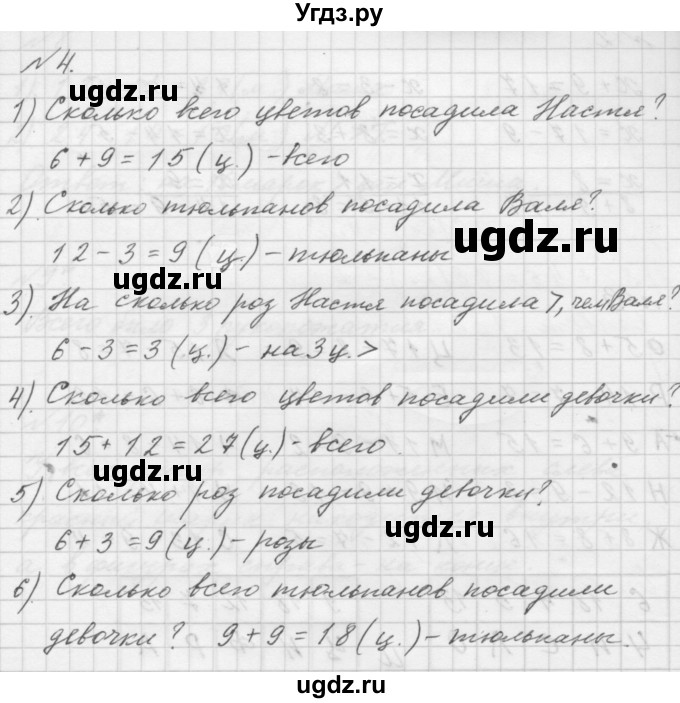 Угдз.ру
№ 4.
1) Сколько всего цветов посадила Настя?
ugdz.ru ugdz.ru
6 + 9 = 15 (ц.) - всего
2). Сколько тюльпанов посадила Валя?
ugdz.ru
12 - 3 = 9 (ц.) - тюльпаны
ugdz.ru
3). На сколько роз Настя посадила >, чем Валя?
6 - 3 = 3 (ц.) - на 3 ц. >
ugdz.ru
4). Сколько всего цветов посадили девочки?
15 + 12 = 27 (ц.) - всего
ugdz.ru
5) Сколько роз посадили девочки?
6 + 3 = 9 (ц.) - розы
ugdz.ru
ugdz.ru
6) Сколько всего тюльпанов посадили
девочки? 9 + 9 = 18 (ц.) - тюльпаны.
ugdz.ru
ugdz.ru